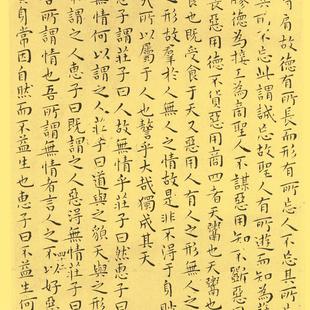 肩故德有所長而形有所忘人不忘其所
其所不忘此謂誠忘故聖人有所遊而知為
膠德為接工為商聖人不謀惡用知不斷惡用
喪惡用德不貨惡用商四者天鬻也天鬻
也既受食于天又惡用人有人之形無人
之形故羣於人無人之情故是非不得于身
所以屬于人也謷乎大哉獨成其天
惠子謂莊子曰人故無情乎莊子曰然惠子曰
無情何以謂之人莊子曰道與之貌天與之形
謂之人惠子曰既謂之人惡得無情莊子曰
所謂情也吾所謂無情者言人之不以好惡
其身常因自然而不益生也惠子曰不益生何